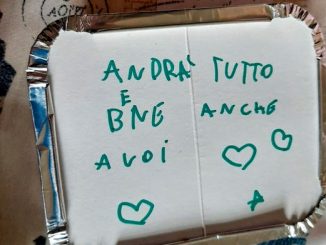 ANDRA' TUTTO
E
BNE ANCHE
A VOI
A